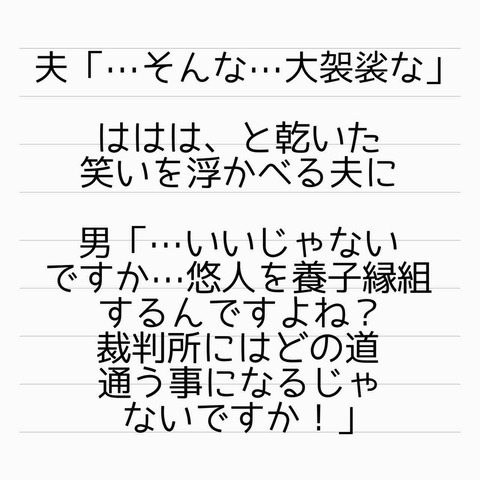 夫「…そんな…大袈裟な」
ははは、と乾いた
笑いを浮かべる夫に
男「…いいじゃない
ですか…悠人を養子縁組
するんですよね？
裁判所にはどの道
通う事になるじゃ
ないですか！」